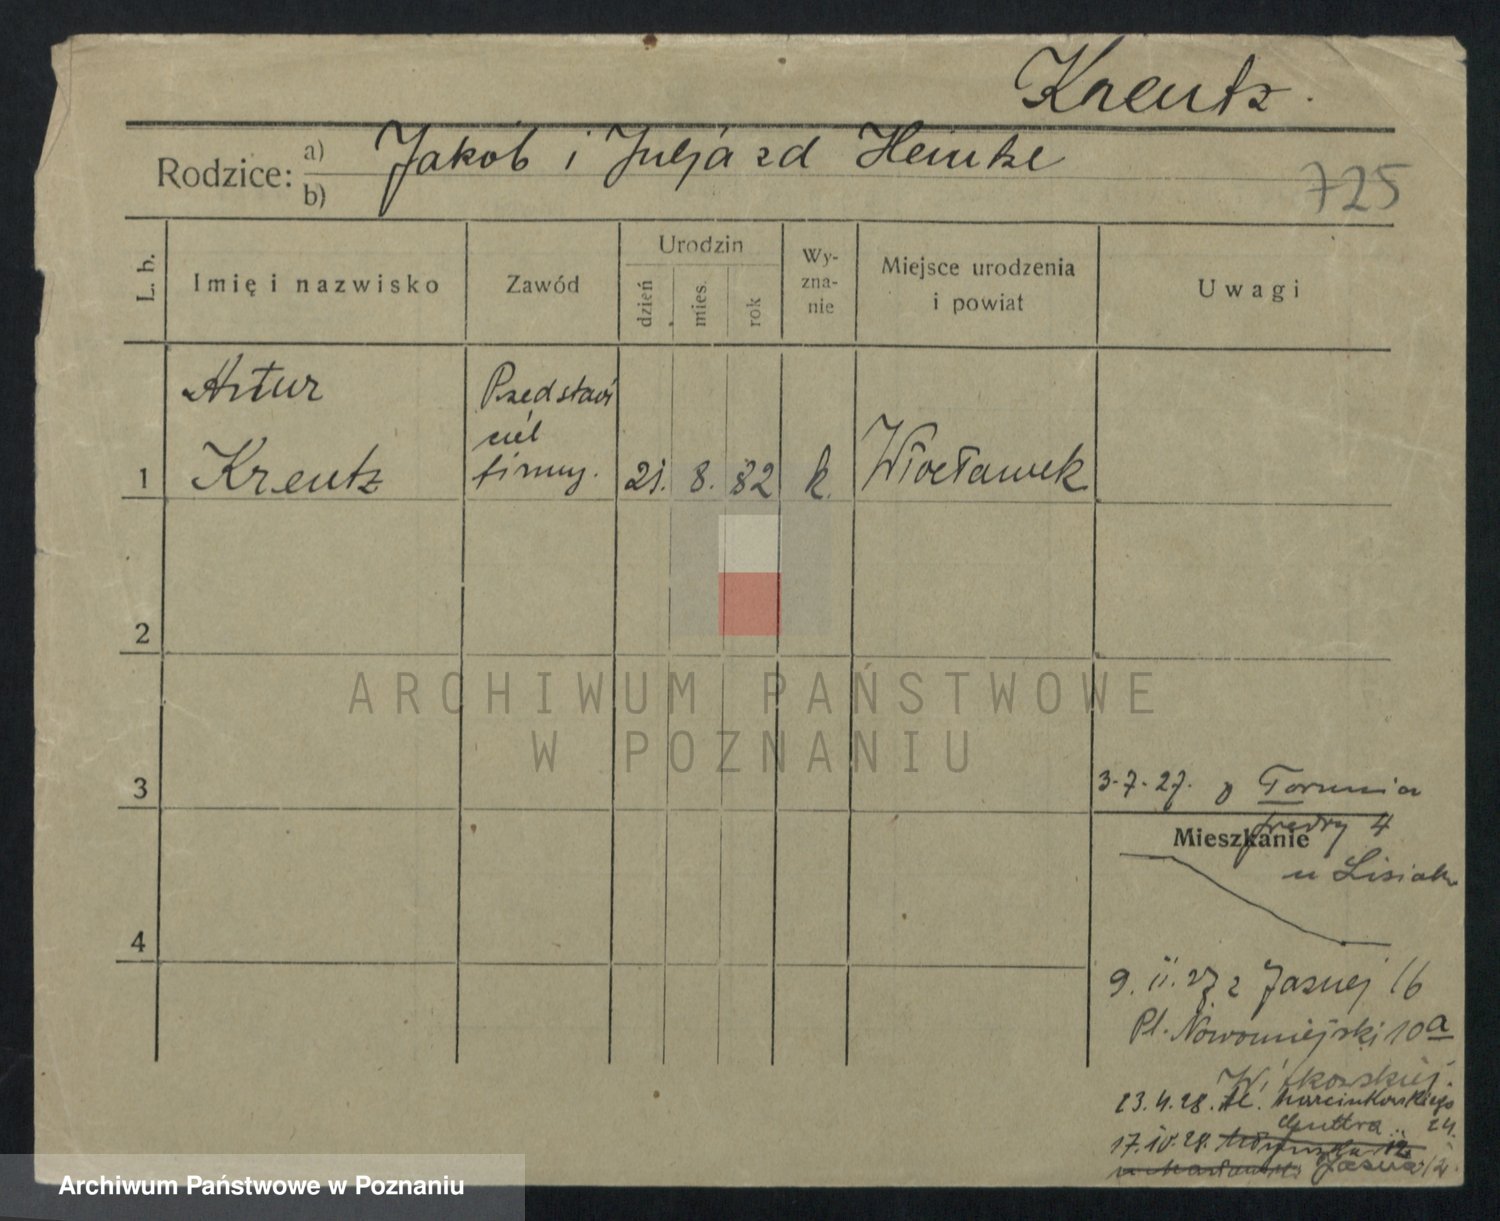 Kreutz.
Rodzice: a) Jakób i Julja zd Heintze
b)
725
L. b.
Imię i nazwisko
Zawód
Urodzin
dzień
mies.
rok
Wy-
zna-
nie
Miejsce urodzenia
i powiat
Uwagi
1
Artur
Kreutz
Przedstawi
ciel
firmy.
21. 8. 82
k.
Włocławek
2
3
4
ARCHIWUM PAŃSTWOWE
W POZNANIU
3-7-27. z Torunia
Fredry 4
Mieszkanie
u Lisiak
9. II. 27 z Jasnej 16
Pl. Nowomiejski 10a
Witkowskiej.
23.4.28. Al. Marcinkowskiego
24.
17.IV.28.
Jasna 12
Archiwum Państwowe w Poznaniu